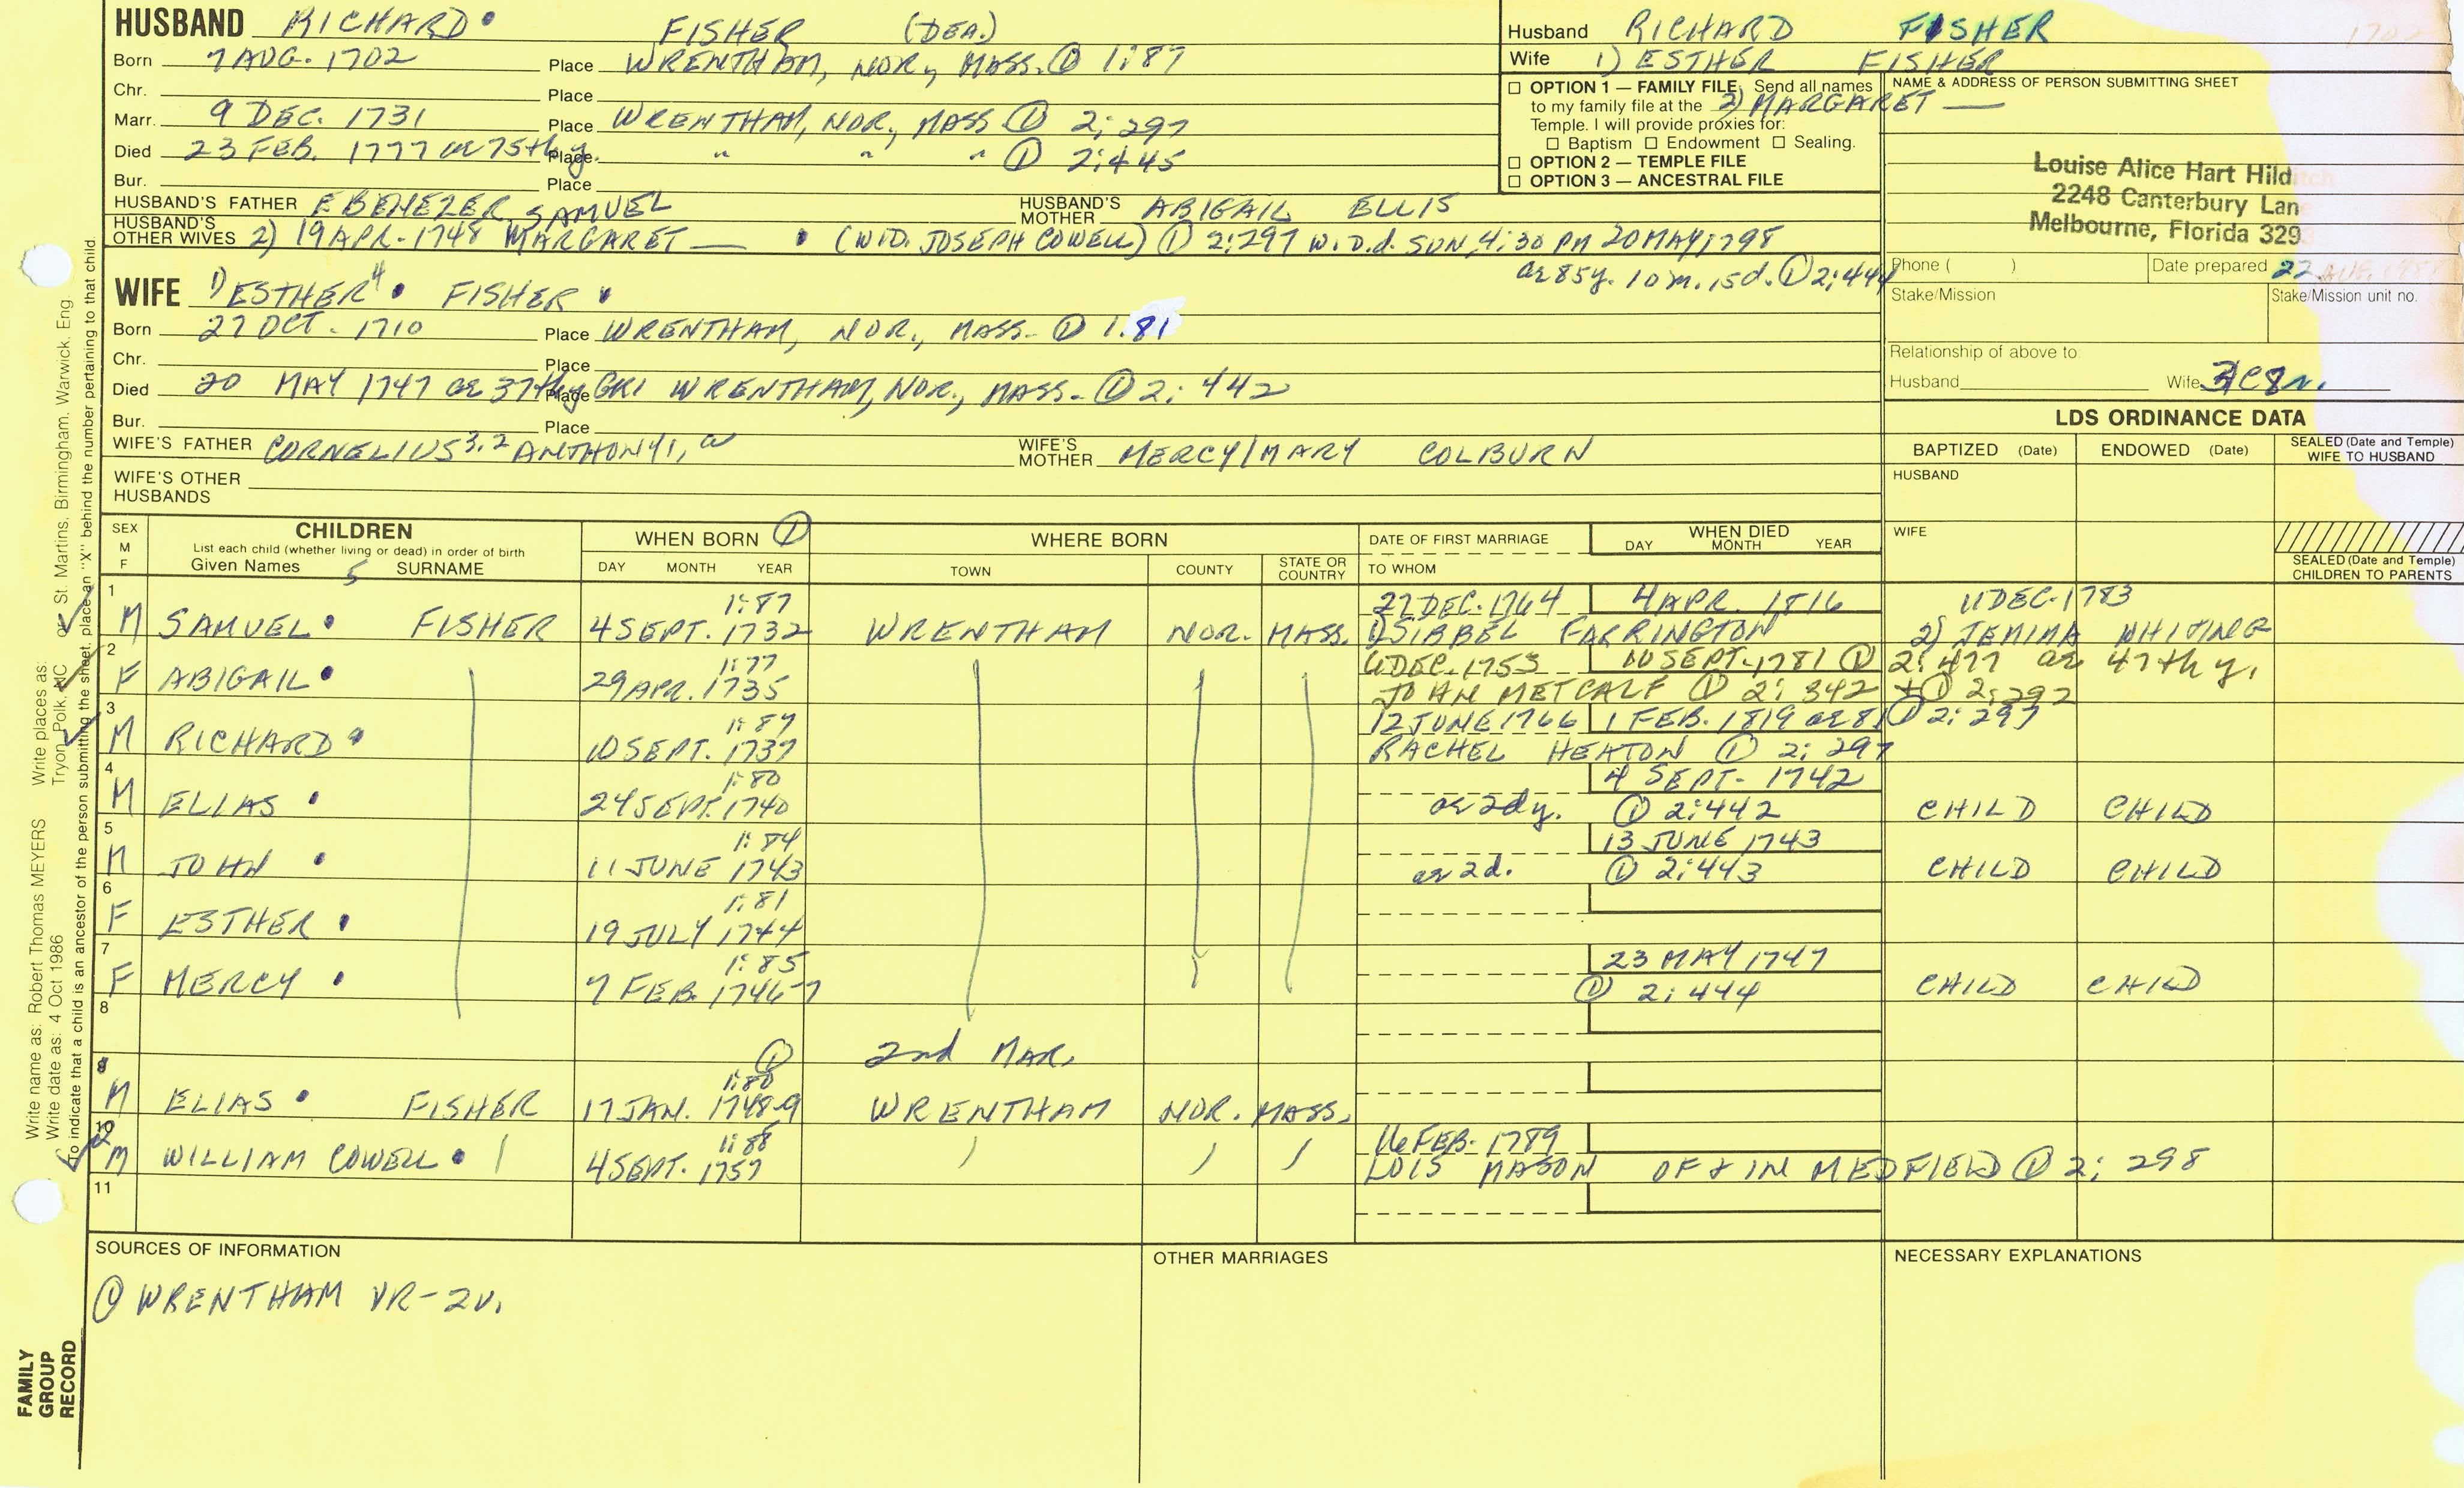 HUSBAND RICHARD FISHER (DEA.)
Born 7 AUG. 1702 Place WRENTHAM, NOR., MASS. ① 1:87
Chr. Place
Marr. 9 DEC. 1731 Place WRENTHAM, NOR., MASS ① 2:297
Died 23 FEB. 1777 ae 75th y. Place " " " ① 2:445
Bur. Place
HUSBAND'S FATHER EBENEZER, SAMUEL HUSBAND'S MOTHER ABIGAIL ELLIS
HUSBAND'S OTHER WIVES 2) 19 APR. 1748 MARGARET — (WID. JOSEPH COWELL) ① 2:297 W.D.d. SUN, 4:30 PM 20 MAY 1798
ae 85y. 10 m. 15d. ① 2:444
Husband RICHARD FISHER
Wife 1) ESTHER FISHER
2) MARGARET —
☐ OPTION 1 — FAMILY FILE Send all names
to my family file at the
Temple. I will provide proxies for:
☐ Baptism ☐ Endowment ☐ Sealing.
☐ OPTION 2 — TEMPLE FILE
☐ OPTION 3 — ANCESTRAL FILE
NAME & ADDRESS OF PERSON SUBMITTING SHEET
Louise Alice Hart Hild
2248 Canterbury Lan
Melbourne, Florida 329
Phone ( ) Date prepared 22
Stake/Mission Stake/Mission unit no.
Relationship of above to
Husband Wife
WIFE 1) ESTHER 4 FISHER
Born 27 OCT. 1710 Place WRENTHAM, NOR., MASS. ① 1:81
Chr. Place
Died 20 MAY 1747 ae 37th y GR1 Place WRENTHAM, NOR., MASS. ① 2:442
Bur. Place
WIFE'S FATHER CORNELIUS 3, 2 ANTHONY 1, WIFE'S MOTHER MERCY/MARY COLBURN
WIFE'S OTHER HUSBANDS
LDS ORDINANCE DATA
BAPTIZED (Date) ENDOWED (Date) SEALED (Date and Temple) WIFE TO HUSBAND
HUSBAND
WIFE
SEALED (Date and Temple) CHILDREN TO PARENTS
SEX M F CHILDREN WHEN BORN ① WHERE BORN DATE OF FIRST MARRIAGE WHEN DIED
List each child (whether living or dead) in order of birth
Given Names 5 SURNAME DAY MONTH YEAR TOWN COUNTY STATE OR COUNTRY TO WHOM DAY MONTH YEAR
1 1:87 27 DEC. 1764 4 APR. 1816 11 DEC. 1783
M SAMUEL FISHER 4 SEPT. 1732 WRENTHAM NOR. MASS. 1) SIBBEL FARRINGTON 2) JEMIMA WHITING
2 1:77 6 DEC. 1753 10 SEPT. 1781 ① 2:477 ae 47th y.
F ABIGAIL 29 APR. 1735 JOHN METCALF ① 2:342 + ① 2:292
3 1:87 12 JUNE 1766 1 FEB. 1819 ae 81 ① 2:297
M RICHARD 10 SEPT. 1737 RACHEL HEATON ① 2:297
4 1:80 4 SEPT. 1742
M ELIAS 24 SEPT. 1740 ae 2d y. ① 2:442 CHILD CHILD
5 1:84 13 JUNE 1743
M JOHN 11 JUNE 1743 ae 2d. ① 2:443 CHILD CHILD
6 1:81
F ESTHER 19 JULY 1744
7 1:85 23 MAY 1747
F MERCY 7 FEB. 1746-7 ① 2:444 CHILD CHILD
8
① 2nd MAR.
9 1:80
M ELIAS FISHER 17 JAN. 1748-9 WRENTHAM NOR. MASS.
10 1:88 16 FEB. 1789
M WILLIAM COWELL 4 SEPT. 1757 LOIS MASON OF & IN MEDFIELD ① 2:298
11
SOURCES OF INFORMATION OTHER MARRIAGES NECESSARY EXPLANATIONS
① WRENTHAM VR-2V.
FAMILY
GROUP
RECORD
Write name as: Robert Thomas MEYERS Write places as:
Write date as: 4 Oct 1986 Tryon, Polk, NC or St. Martins, Birmingham, Warwick, Eng
To indicate that a child is an ancestor of the person submitting the sheet, place an "X" behind the number pertaining to that child.